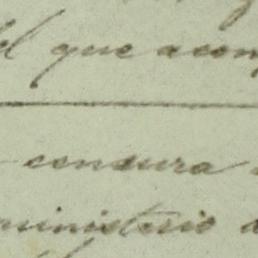 que acom
censura
ministerio